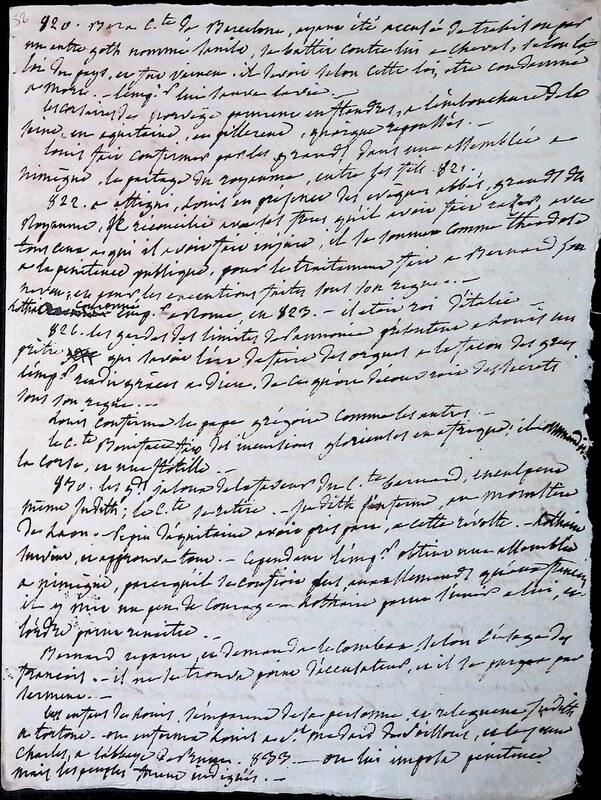 52
820. Bera C.te de Barcelone, ayant été accusé de trahison par
un autre goth nommé Sanila, se battit contre lui a cheval, selon la
loi du pays, et fut vaincu. il devoit selon cette loi, etre condamné
a mort. - l'emp.r lui sauva la vie. -
les corsaires de norvège parurent en flandres, a l'embouchure de la
seine, en aquitaine, en pillerent, quoique repoussés. -
louis fait confirmer par les grands dans une assemblée a
nimègue, le partage du royaume, entre ses fils. 821.
822. a attigni, louis en présence des évêques abbés, grands du
royaume, se reconcilie avec ses freres qu'il avoit fait raser, avec
tous ceux a qui il avoit fait injure, il se soumit comme théodose
a la pénitence publique, pour le traitement fait a Bernard son
neveu, et pour les executions faites sous son regne. -
lothaire couronné emp. a Rome en 823. - il etoit roi d'italie -
826. les gardes des limites de pannonie présentent a louis un
prêtre qui savoit l'art de faire des orgues a la façon des grecs
l'emp.r rendit grâces a dieu, de ce qu'on découvroit des secrets
sous son regne. -
louis confirme le pape grégoire comme les autres. -
le C.te Boniface fait des incursions glorieuses en afrique; il
la corse, et une flotille. -
830. les gds jaloux de la faveur du C.te bernard, inculpent
même Judith; le C.te se retire. - Judith s'enferme au monastère
de laon. - Pepin d'aquitaine avoit pris part, a cette révolte. - lothaire
survint, et approuva tout. - Cependant l'emp.r obtint une assemblée
a nimègue, parce qu'il se confioit plus aux allemands qu'aux françois
il y mit un peu de courage - lothaire parut s'unir a lui, et
l'ordre parut renaitre. -
Bernard reparut, et demanda le combat selon l'usage des
francois. - il ne se trouva point d'accusateur, et il se purgea par
serment. -
les enfans de louis, s'emparent de sa personne, et releguent Judith
a tortone. - on enferma louis a S.t medard de Soissons, et le jeune
Charles, a l'abbaye de Prum. 833 - on lui imposa pénitence
mais les peuples furent indignés. -